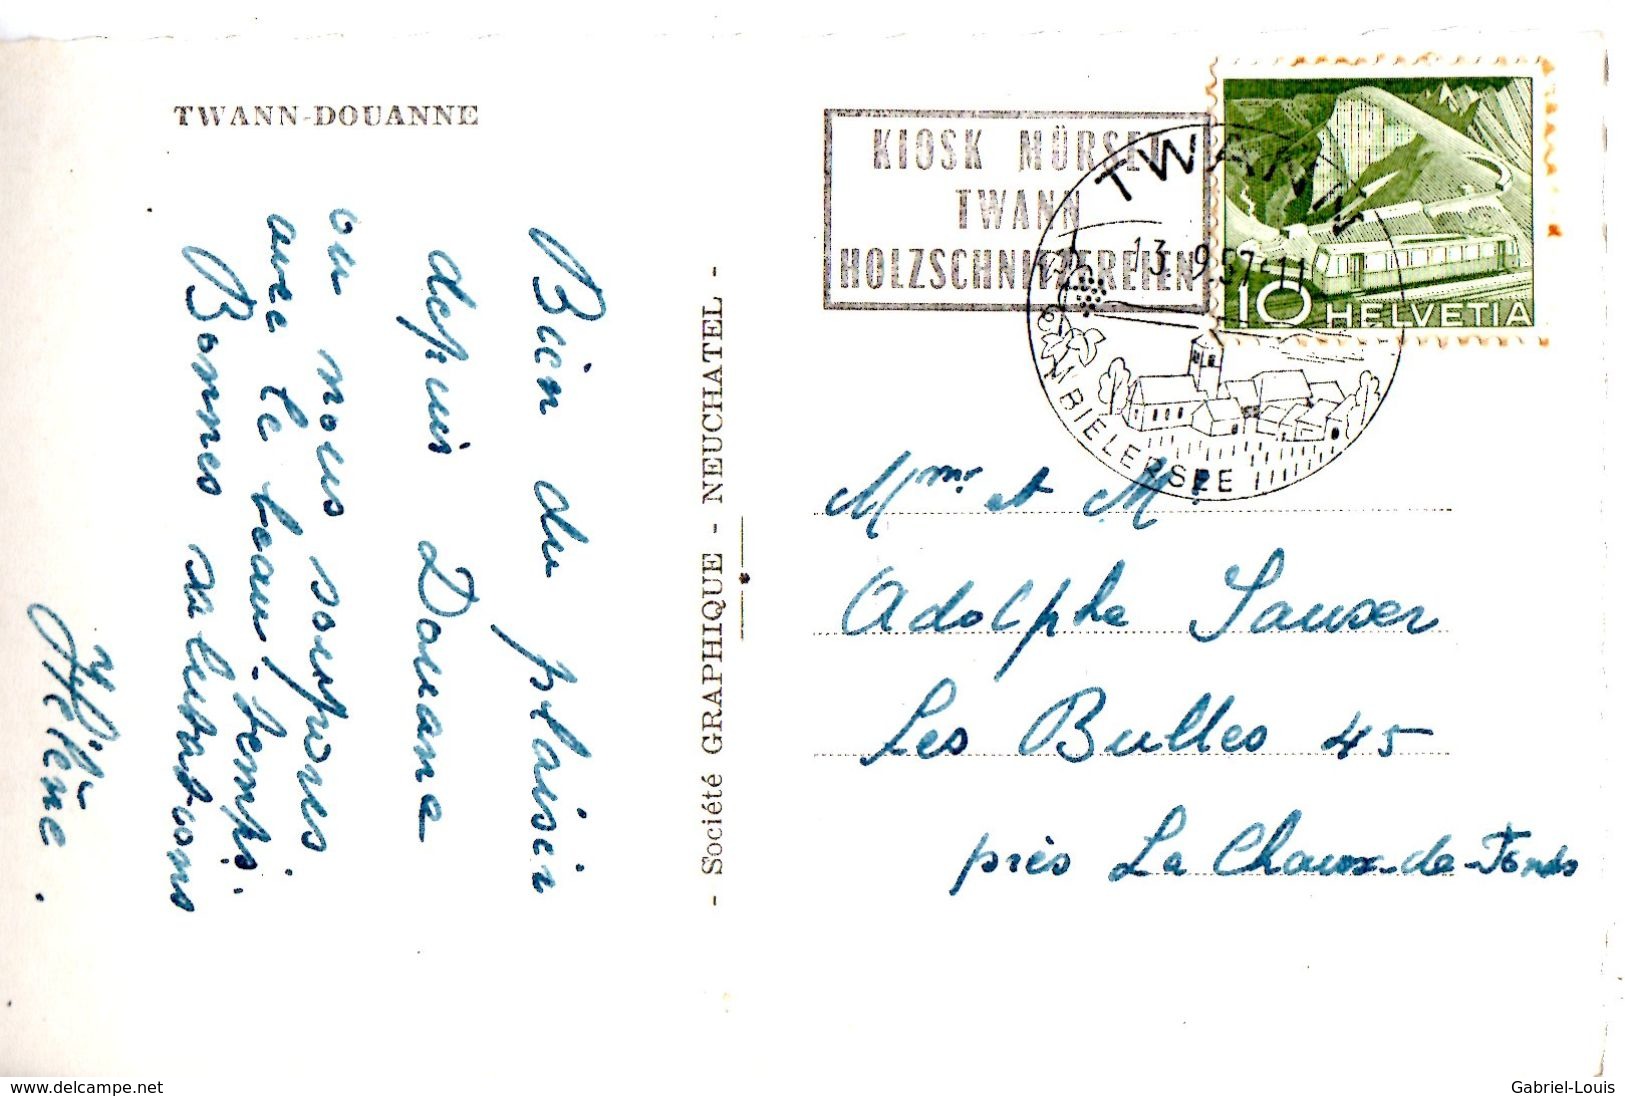 TWANN-DOUANNE
Bien du plaisir
depuis Douana
ou nous soupons
avec le beau-temps.
Bonnes salutations
Hélène.
- Société GRAPHIQUE - NEUCHATEL -
KIOSK MÜRSET
TWANN
HOLZSCHNITZEREIEN
TWANN
13.9.57-11
AM BIELERSEE
10 HELVETIA
Mme et Mr
Adolphe Sauser
Les Bulles 45
près La Chaux-de-Fonds
www.delcampe.net
Gabriel-Louis